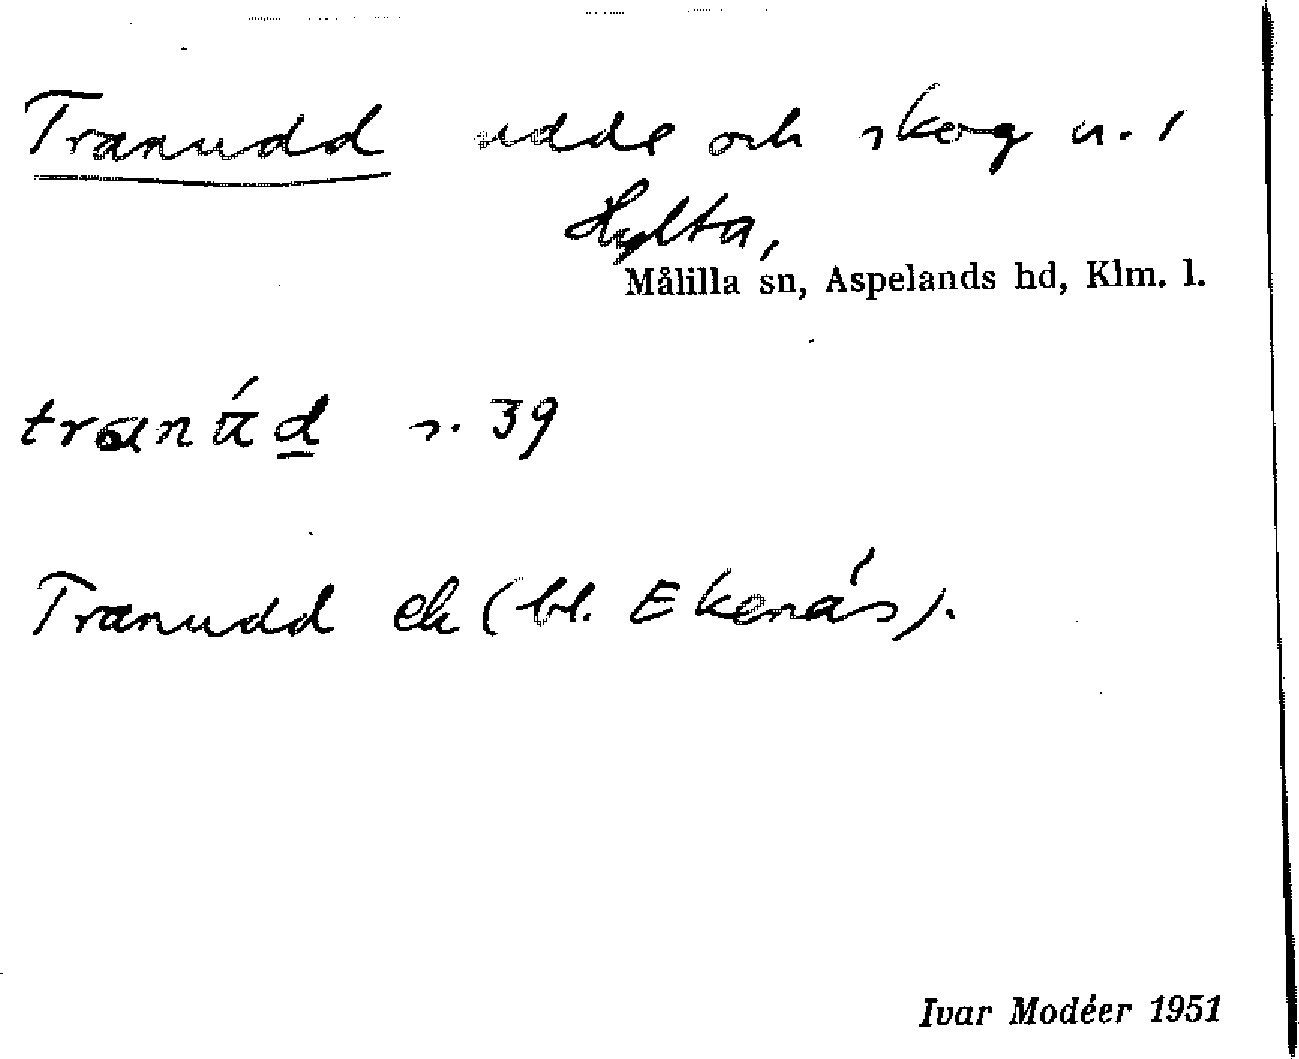 Tranudd udde och skog n. i
Hylta,
Målilla sn, Aspelands hd, Klm. l.
tranúd s. 39
Tranudd ek (bl. Ekenäs).
Ivar Modéer 1951